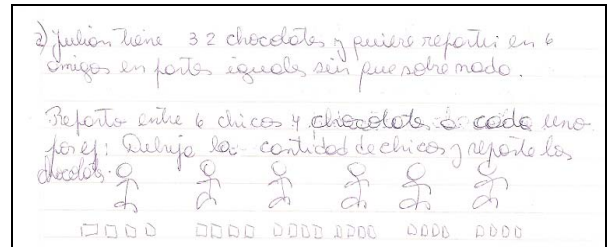 a) Julián tiene 32 chocolates y quiere repartir en 6
amigos en partes iguales sin que sobre nada.
Reparto entre 6 chicos 4 chocolates a cada uno
por ej: Dibuja la cantidad de chicos y reparte los
chocolates.